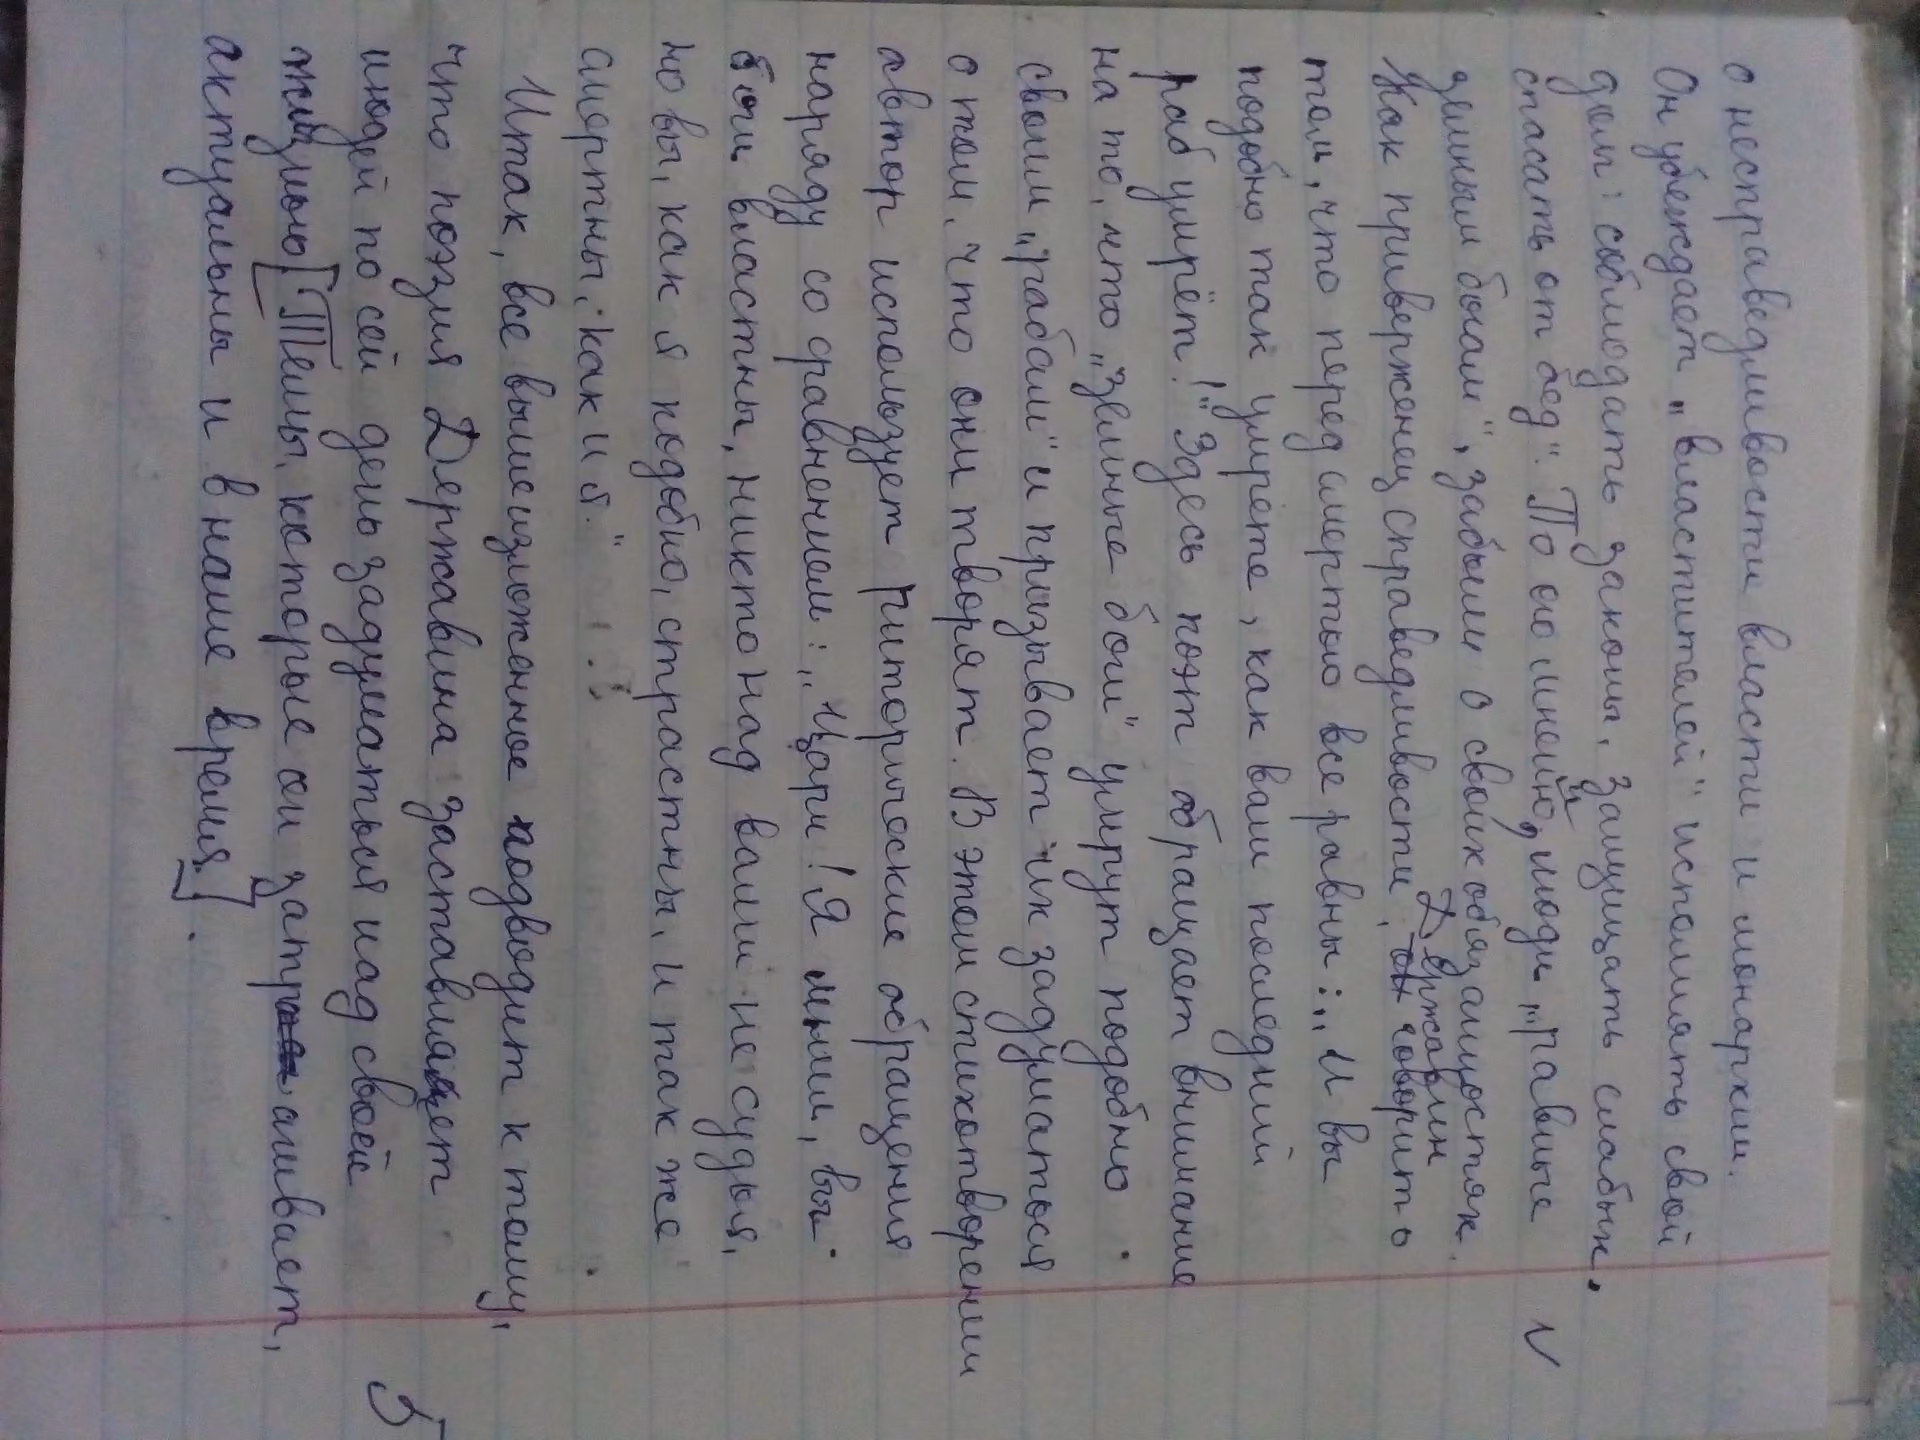 о несправедливости власти и монархии.
Он убеждает „властителей" исполнять свой
долг: соблюдать законы, защищать слабых,
спасать от бед". По его мнению, люди „равные
земным богам", забыли о своих обязанностях.
Как приверженец справедливости, он Державин говорить
том, что перед смертью все равны: „И вы
подобно так умрёте, как ваш последний
раб умрёт!" Здесь поэт обращает внимание
на то, что „земные боги" умрут подобно
своим „рабам" и призывает их задуматься
о том, что они творят. В этом стихотворении
автор использует риторические обращения
наряду со сравнением: „Цари! Я мнил, вы
боги властны, никто над вами не судья,
но вы, как я подобно, страстны, и так же
смертны, как и я."
Итак, все вышеизложенное подводит к тому,
что поэзия Державина заставляет
людей по сей день задуматься над своей
жизнью. [Темы, которые он затрагивает,
актуальны и в наше время.].
V
5